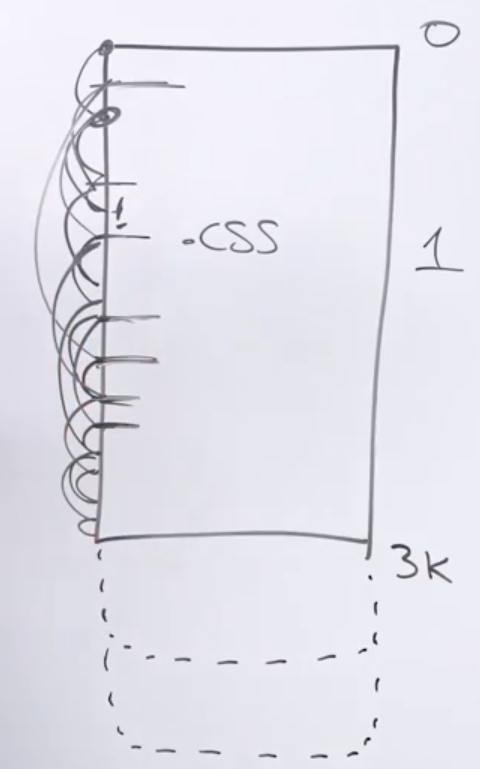 0
!
.CSS
1
3K